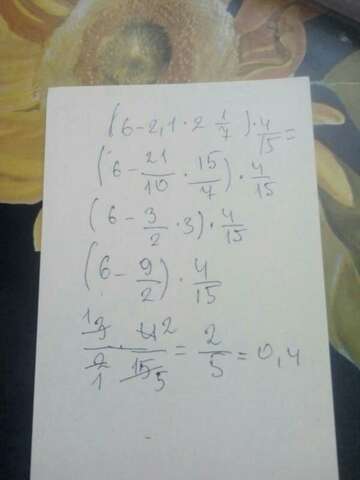 (6-2,1·2 1/7)·4/15=
(6-21/10·15/7)·4/15
(6-3/2·3)·4/15
(6-9/2)·4/15
1 3·4 2/2 1·15 5=2/5=0,4